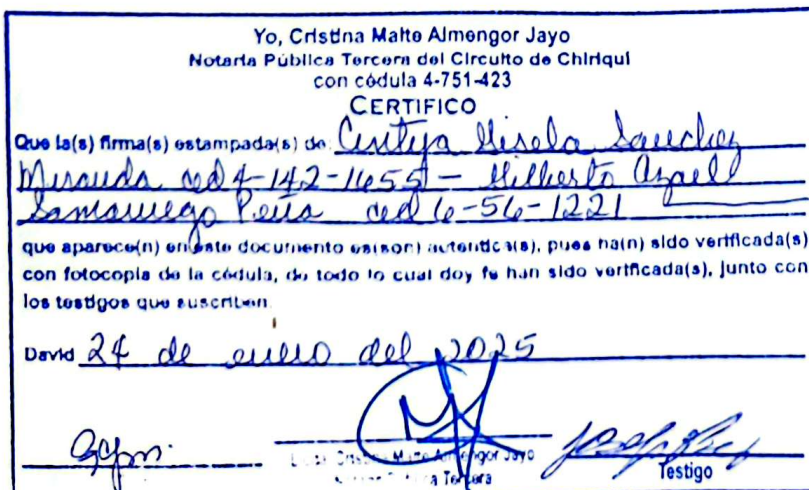 Yo, Cristina Maite Almengor Jayo
Notaria Pública Tercera del Circuito de Chiriquí
con cédula 4-751-423
CERTIFICO
Que la(s) firma(s) estampada(s) de: Cintya Gisela Sanchez
Miranda ced 4-142-1655 - Gilberto Azael
Samaniego Peña ced 6-56-1221
que aparece(n) en este documento es(son) autentica(s), pues ha(n) sido verificada(s)
con fotocopia de la cédula, de todo lo cual doy fe han sido verificada(s), junto con
los testigos que suscriben.
David 24 de enero del 2025
Cristina Maite Almengor Jayo
Tercera
Testigo